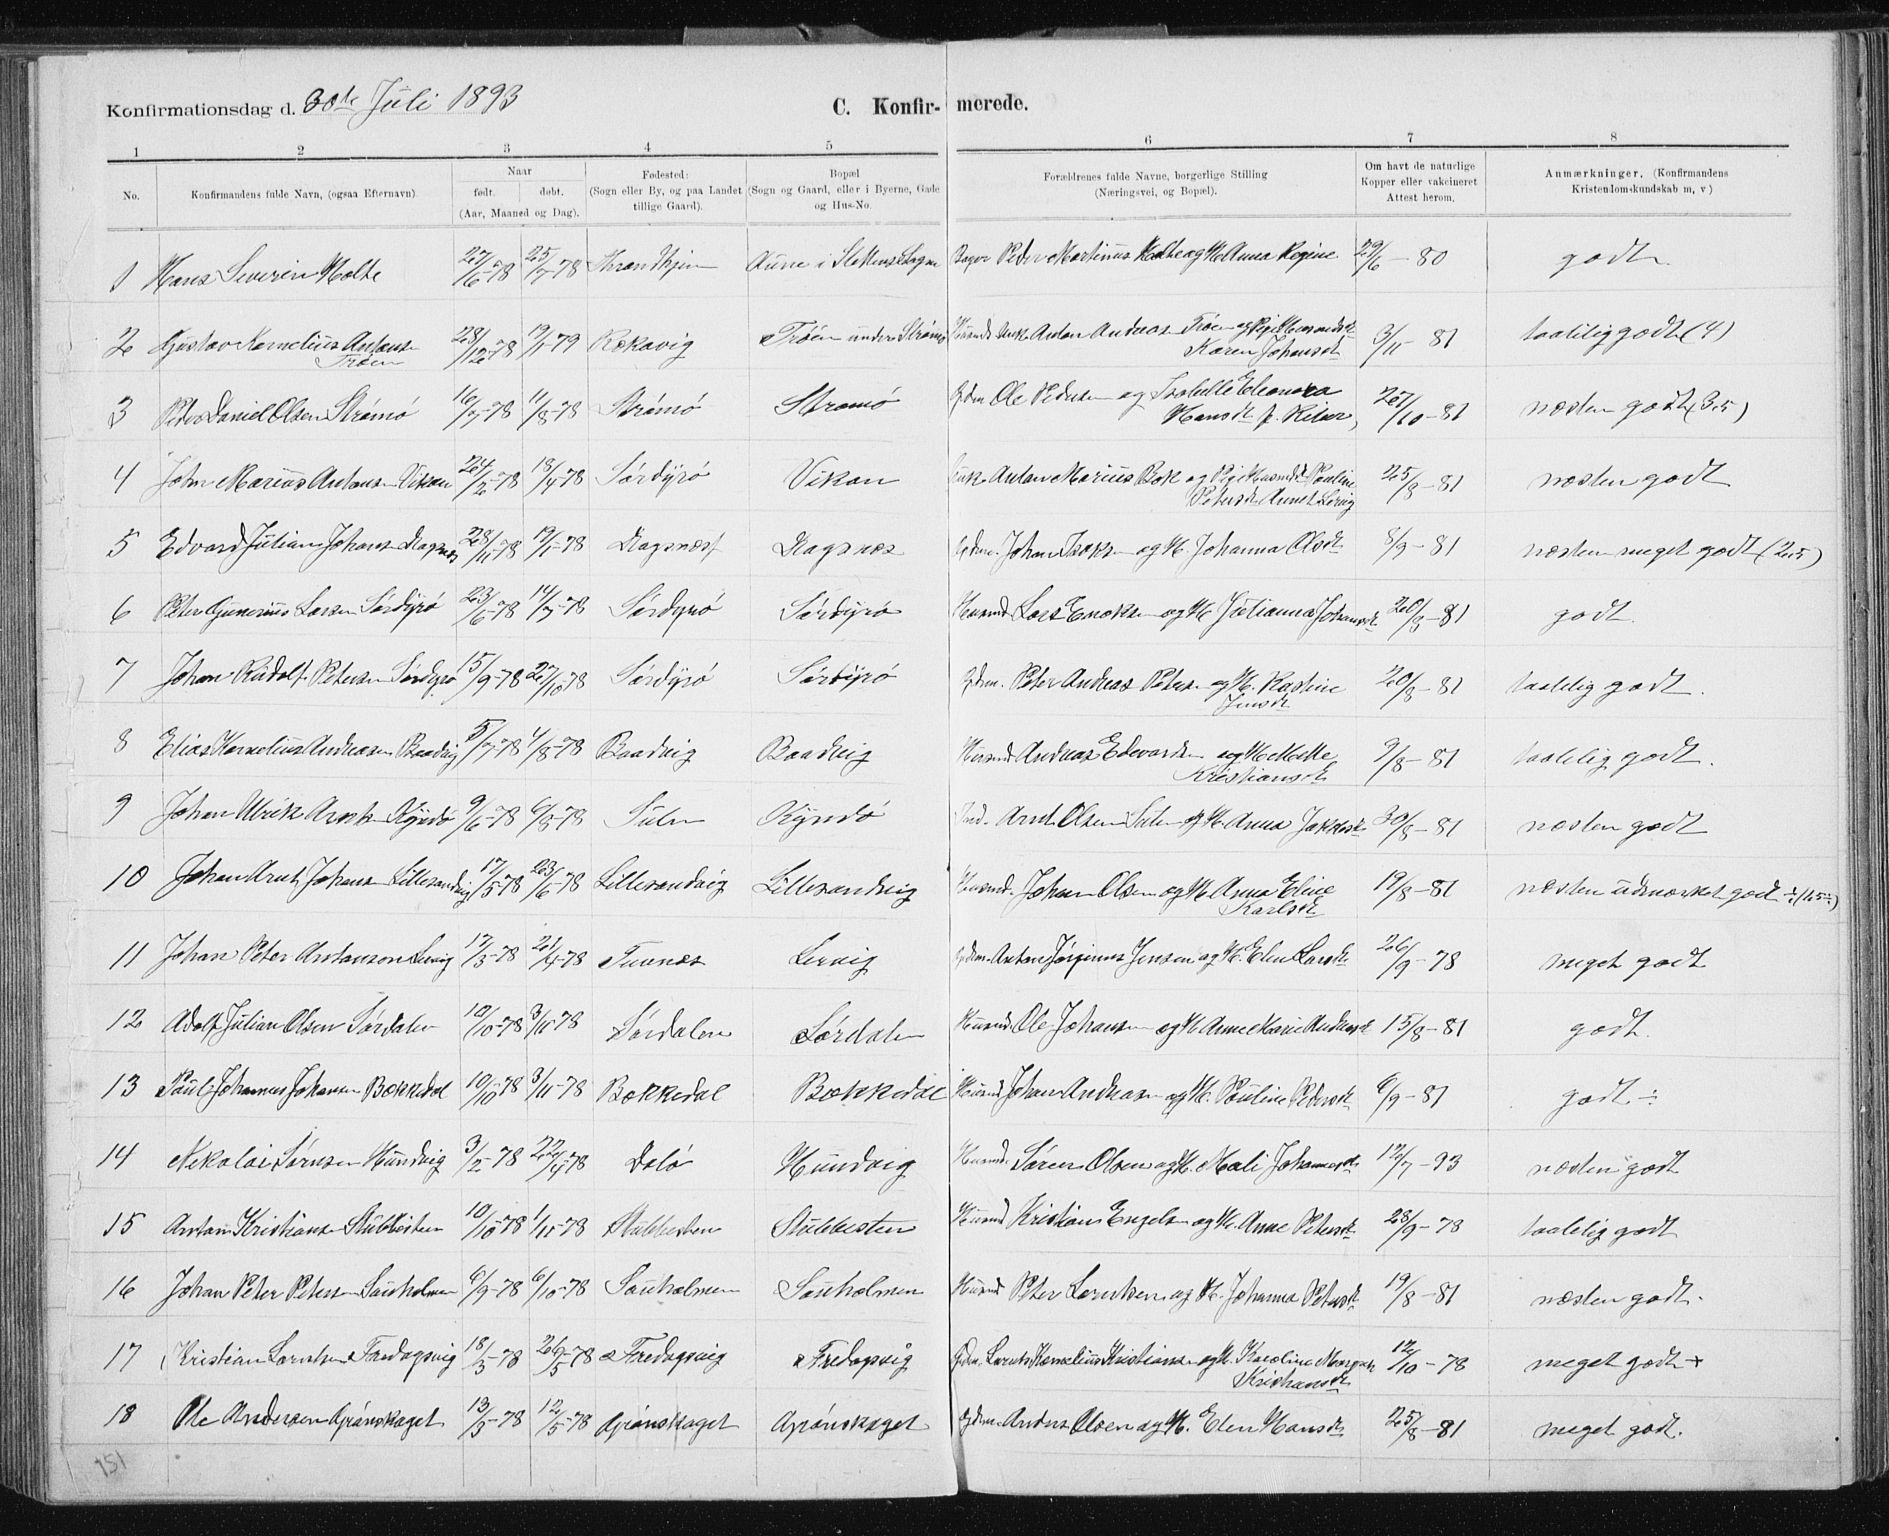 Konfirmationsdag d. 30te Juli 1893
C. Konfirmerede.
1 2 3 4 5 6 7 8
No.
Konfirmandens fulde Navn, (ogsaa Efternavn)
Naar født. døbt. (Aar, Maaned og Dag).
Fødested: (Sogn eller By, og paa Landet tillige Gaard).
Bopæl (Sogn og Gaard, eller i Byerne, Gade og Hus-No.
Forældrenes fulde Navne, borgerlige Stilling (Næringsvei, og Bopæl).
Om havt de naturlige Kopper eller vakcineret Attest herom.
Anmærkninger. (Konfirmandens Kristendomskundskab m, v)
1 Hans Severin Holte 27/6-78 25/7-78 Throndhjem Aune i Peder Martinus Holte og H. Anna Regine 29/6-80 godt
2 Gustav Kornelius Antons. Trøen 28/12-78 19/1-79 Rækavig Trøen under Strømø Anton Andreas Trøen og Pige Karen Johansdt. 3/11-81 taalelig godt (4)
3 Peder Daniel Olsen Strømø 16/7-78 11/8-78 Strømø Strømø Gdm. Ole Pedersen og Isabelle Eleonora Hansdt. 27/10-81 næsten godt (3.5)
4 John Marius Antons. Vikan 24/2-78 18/4-78 Sørdyrø Vikan Anton Marius og Pige Pauline Petersdt. 25/8-81 næsten godt
5 Edvard Julian Johans. Dagsnæs 28/11-78 19/1-78 Dagsnæs Dagsnæs Gdm. Johan Isaks. og H. Johanna Olsdt. 8/9-81 næsten meget godt (2.5)
6 Peter Gunerius Larsen Sørdyrø 23/6-78 14/7-78 Sørdyrø Sørdyrø Husmd. Lars Enoksen og H. Julianna Johansdt. 20/8-81 godt.
7 Johan Rudolf Petersen Sørdyrø 15/9-78 27/10-78 Sørdyrø Sørdyrø Gdm. Peter Andreas Petersen og H. Kastine Jensdt. 20/8-81 taalelig godt.
8 Elias Kornelius Andreasen Baadvig 5/7-78 4/8-78 Baadvig Baadvig Husmd. Andreas Edvardsen og H. Mette Kristiansdt. 9/8-81 taalelig godt.
9 Johan Ulrik Arnts. Kyrdø 9/6-78 6/8-78 Sulen Kyrdø Ind. Arnt Olsen Sulen og H. Anna 30/8-81 næsten godt
10 Johan Arnt Johans. Lillesandvig 17/5-78 23/6-78 Lillesandvig Lillesandvig Husmd. Johan Olsen og H. Anna Eline Karlsdt. 19/8-81 næsten udmærket godt ÷ (1.5÷)
11 Johan Peter Antonsen Lervig 17/3-78 21/4-78 Tuvnæs Lervig Gdm. Anton Jørginus Jensen og H. Elen Larsdt. 26/9-78 meget godt
12 Adolf Julian Olsen Sørdalen 10/10-78 3/11-78 Sørdalen Sørdalen Husmd. Ole Johansen og H. Anne Marie Andersdt. 15/8-81 godt.
13 Paul Johannes Johansen Bækkedal 10/10-78 3/11-78 Bækkedal Bækkedal Husmd. Johan Andreasen og H. Pauline Pedersdt. 6/9-81 godt ÷
14 Nikolai Sørnsen Hundvig 3/2-78 22/4-78 Dolø Hundvig Husmd. Søren Olsen og H. Mali Johannesdt. 12/7-93 næsten godt
15 Anton Kristians. Stubbesten 10/10-78 1/11-78 Stubbesten Stubbesten Husmd Kristian Engels. og H. Anne Petersdt. 28/9-78 taalelig godt
16 Johan Peter Petersen Sauholmen 6/9-78 6/10-78 Sauholmen Sauholmen Husmd Peter Lorntsen og H. Johanna Petersdt. 19/8-81 næsten godt.
17 Kristian Lorntsen Fredagsvig 18/3-78 26/5-78 Fredagsvig Fredagsvig Gdm. Lornts Kornelius Kristiansen og H. Karoline Kristiansdt. 12/10-78 meget godt +
18 Ole Andersen Grønskaget 13/3-78 12/5-78 Grønskaget Grønskaget Gdm. Anders Olsen og H. Elen Hansdt. 25/8-81 meget godt.
151